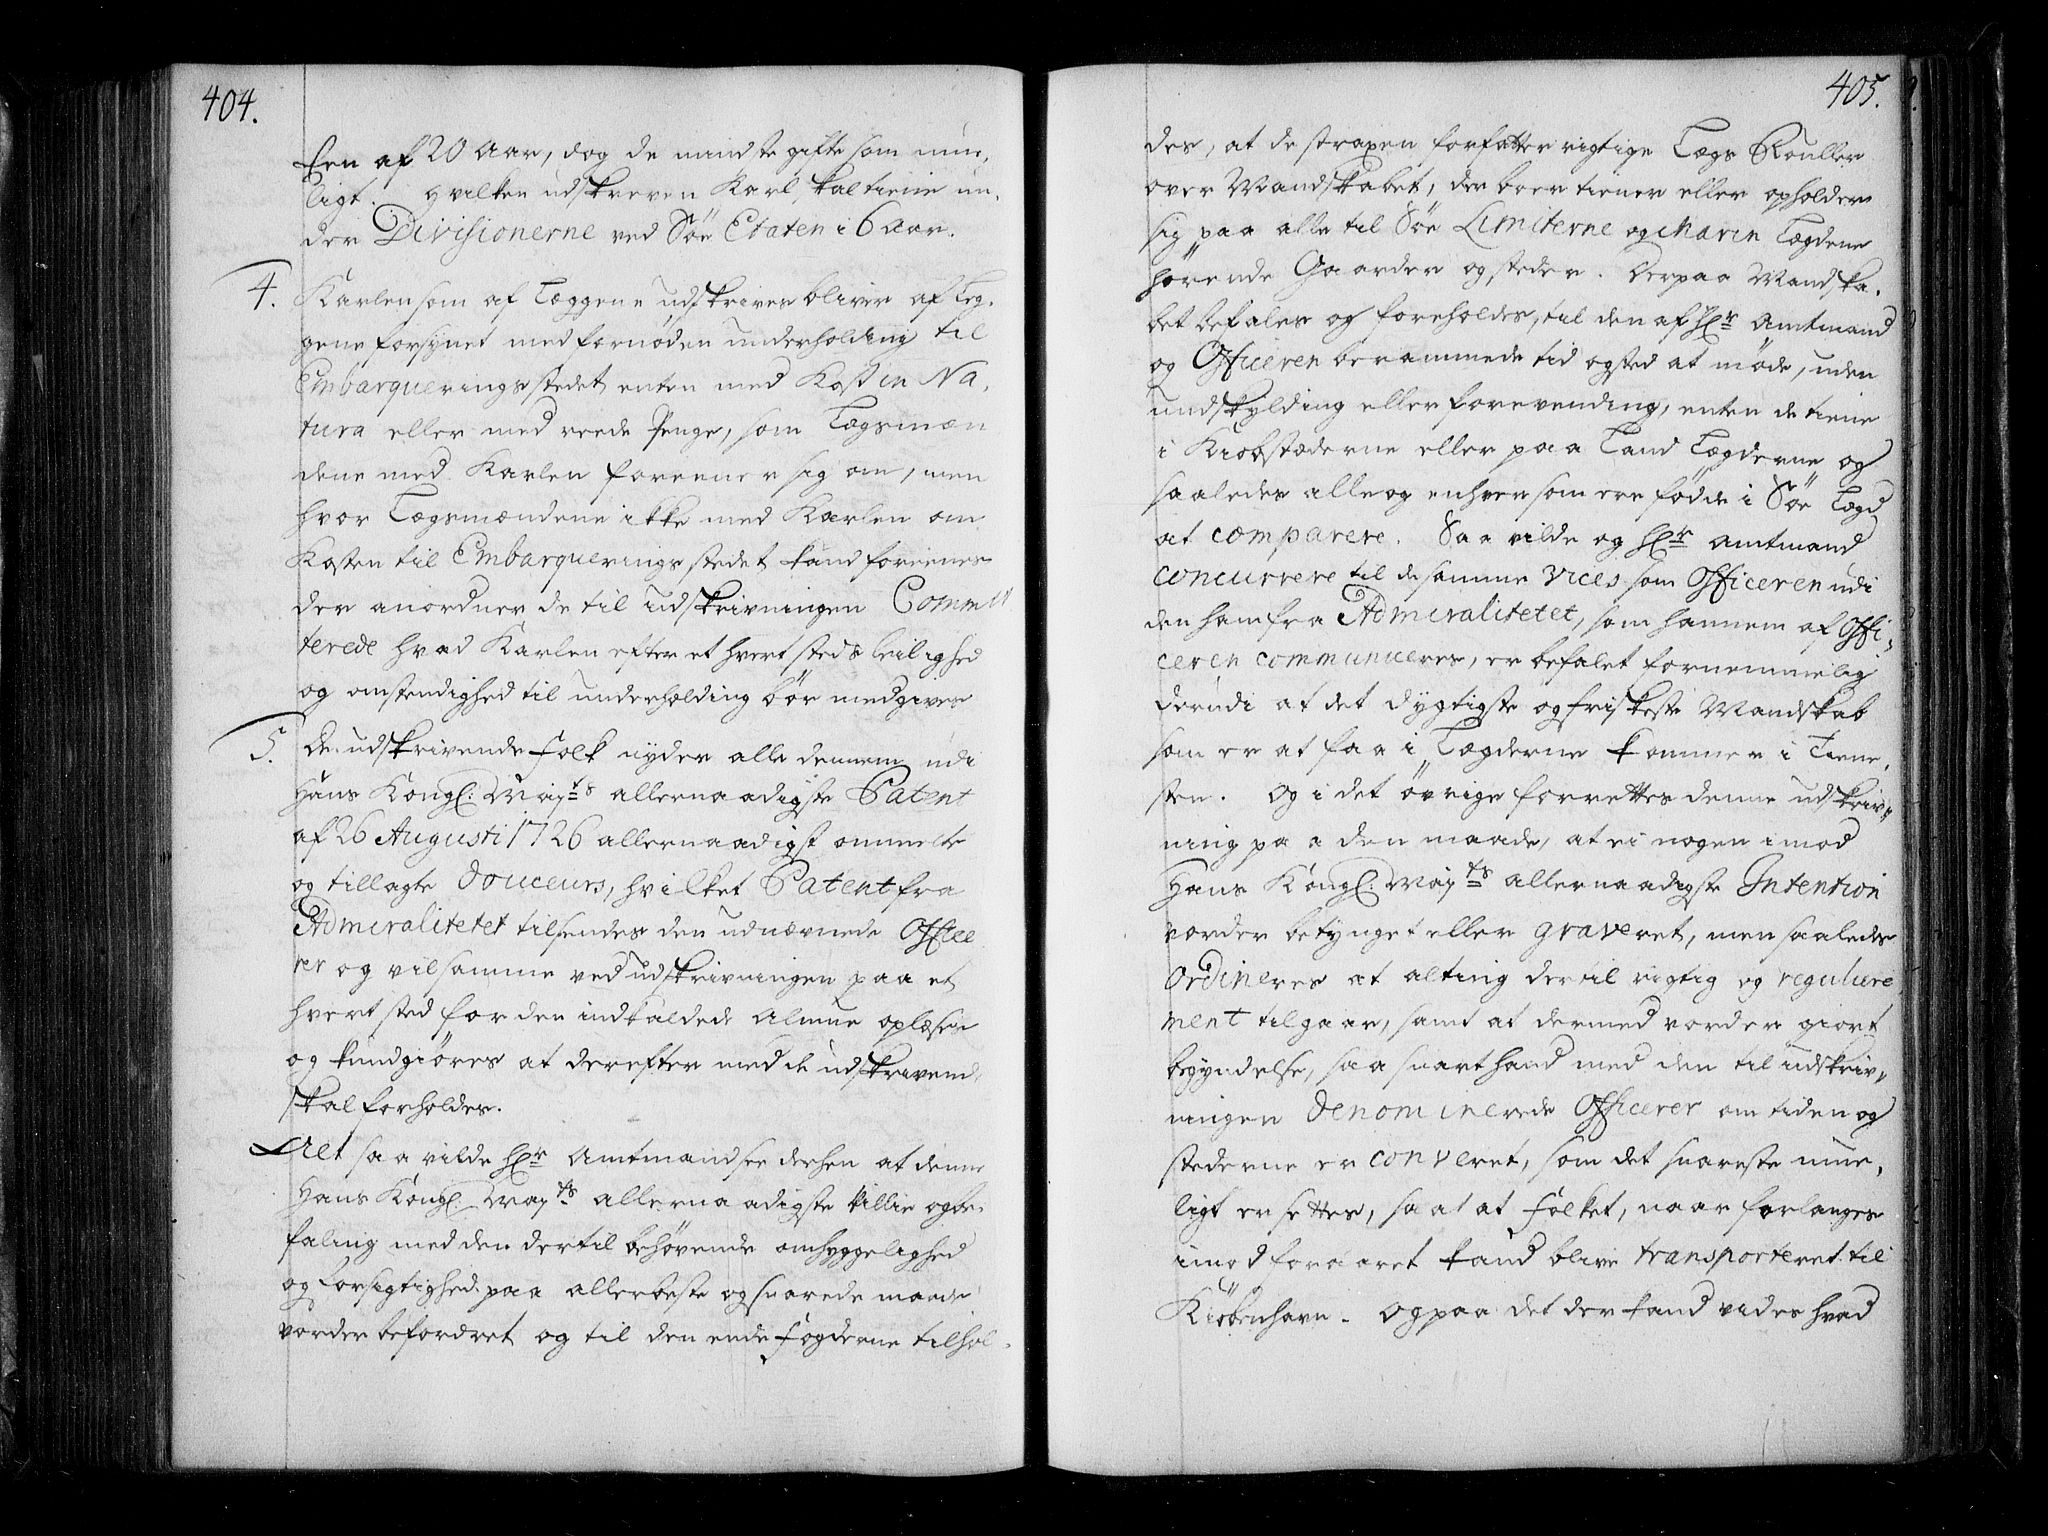 404.
Een af 20 Aar, dog de mindste gifte som mue,
ligt. Hvilken udskreven Karl skal tiene un,
der Divisionerne ved Söe Etaten i 6 Aar.
4. Karlen som af Læggene udskrives bliver af Leg,
gene forsynet med fornøden underholding til
Embarqueringsstedet enten med Kost in Na,
tura eller med reede Penge, som Lægsmæn
dene med Karlen foreener sig om, men
hvor Lægsmændene ikke med Karlen om
Kosten til Embarquerings stedet kand foreenes
der anordner de til udskrivningen Commit
terede hvad Karlen efter et hvert steds leilighed
og omstendighed til underholding bør medgives
5. De udskrivende Folk nyder alle dennem udi
Hans Kongl. May.ts allernaadigste Patent
af 26 Augusti 1726 allernaadigst ommelte
og tillagte Douceurs, hvilket Patent fra
Admiralitetet tilsendes den udnævnede Office
rer og vil samme ved udskrivningen paa et
hvert sted for den indkaldede Almue oplæses
og kundgiöres at derefter med de udskrivend,
skal forholdes.
Alt saa vilde Hr. Amtmand see derhen at denne
Hans Kongl. May.ts allernaadigste Villie og be,
faling med den dertil behøvende omhyggelighed
og forsigtighed paa allerbeste og snarede maade
vorder befordret og til den ende Fogderne tilhol,
405.
des, at de straxen forfatter rigtige Lægs Rouller
over Mandskabet, der boer tiener eller opholder
sig paa alle til Söe Limiterne og Marin Lægdene
hørende Gaarder og steder. Derpaa Mandska,
bet befales og foreholdes, til den af Hr. Amtmand
og Officeren berammede tid og sted at møde, uden
undskylding eller forevending, enten de tiene
i Kiobstæderne eller paa Land Lægderne og
saaledes alle og enhver som ere fødde i Söe Lægd
at comparere. Saa vilde og Hr. Amtmand
concurrere til de samme vices som Officeren udi
den ham fra Admiralitetet, som hannem af Offi,
ceren communiceres, er befalet fornemmelig
derudi at det dygtigste og friskeste Mandskab
som er at faa i Lægderne kommer i Tiene,
sten. Og i det övrige forrettes denne udskriv,
ning paa den maade, at ei nogen imod
Hans Kongl. May.ts allernaadigste Intention
vorder betynget eller graveret, men saaledes
Ordineres at alting dertil rigtig og regulere
ment tilgaar, samt at dermed vorder giort
begyndelse, saa snart hand med den til udskriv,
ningen Denominerede Officerer om tiden og
stederne er converet, som det snareste mue,
ligt er settes, saa at Folket, naar forlanges
imod foraaret kand blive transporteret til
Kiøbenhavn. Og paa det der kand vides hvad